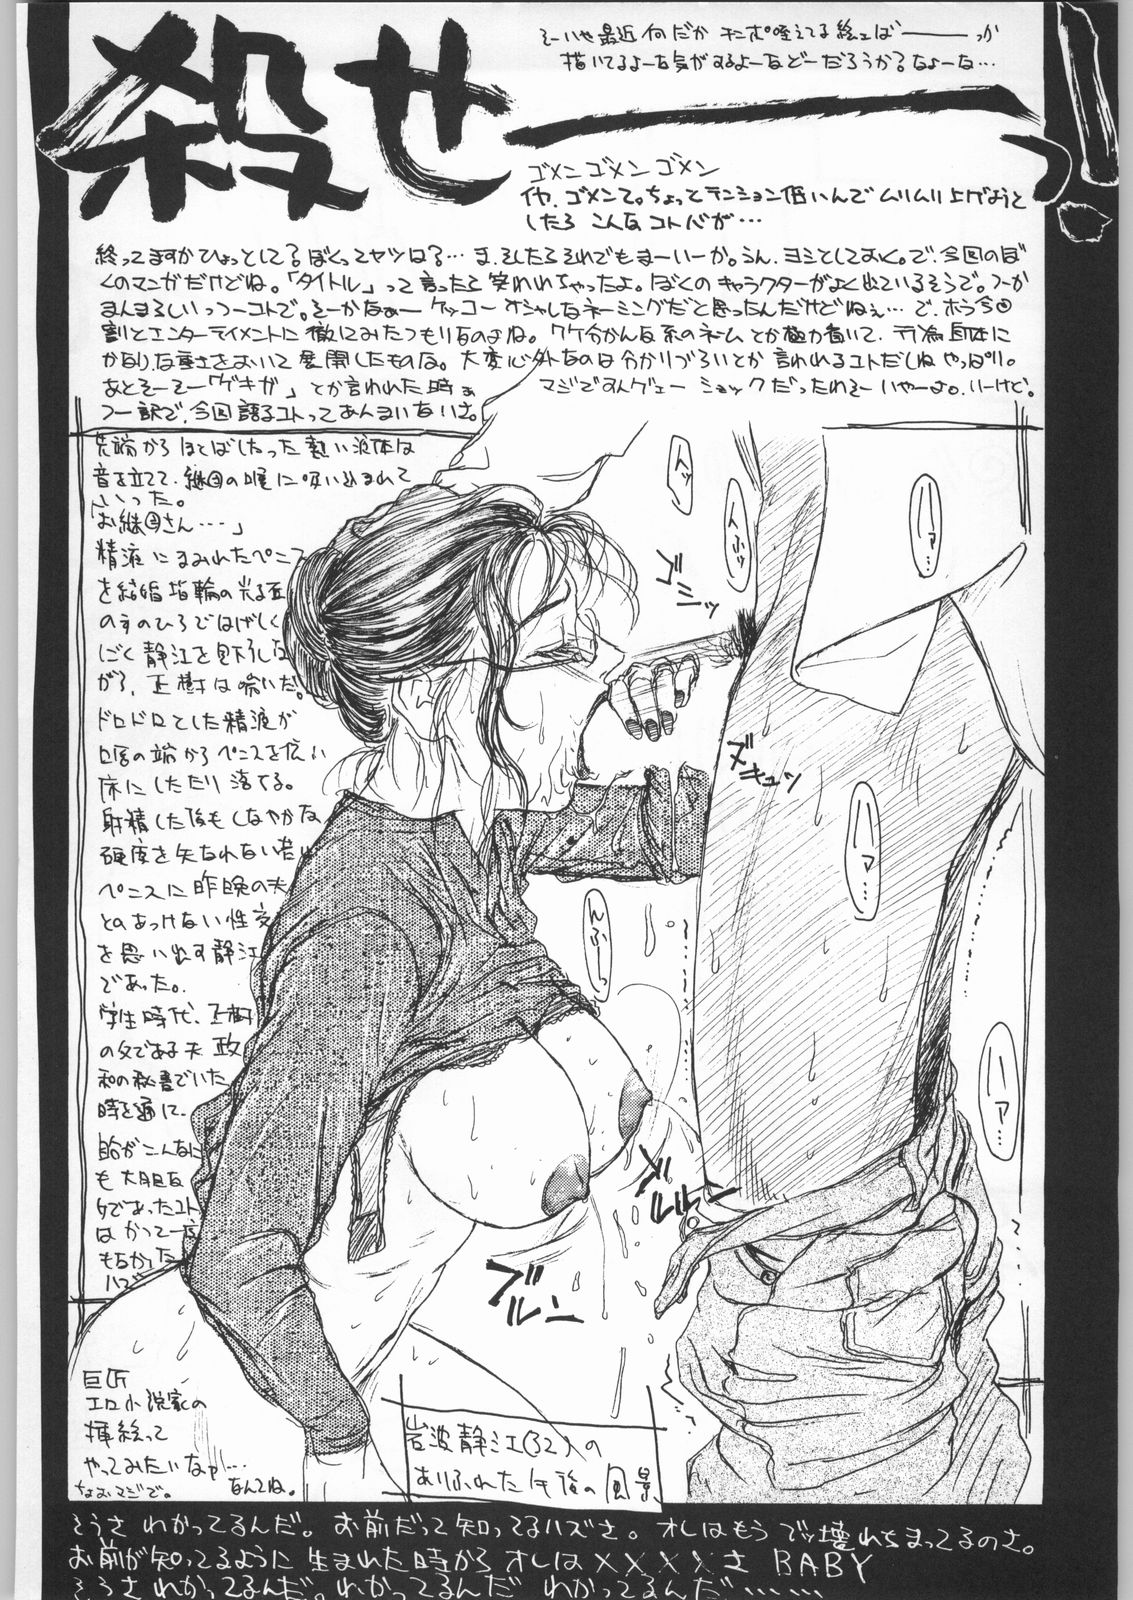 殺せーーっ!!
そーいや最近何だか
描いてるよーな気がするよーなどーだろうか?なよーな…
ゴメンゴメンゴメン
イヤ、ゴメンて。ちょっとテンション低いんでムリムリ上げようと
したら こんなコトバが…
終ってますかひょっとして?ぼくってヤツは?…ま、そしたらそれでもまーいーか。うん、ヨシとしておく。で、今回のぼ
くのマンガだけどね。「タイトル」って言ったら笑われちゃったよ。ぼくのキャラクターがよく出ているそうで。つーか
まんまらしいっつーコトで。そーかなぁー ケッコー オシャレなネーミングだと思ったんだけどねぇ…で、ホラ今回
割とエンターテイメントに徹してみたつもりなのよね。ワケ分かんな系のネームとか極力省いて、行為自体に
かなりな重さをおいて展開したものな。大変心外なのは分かりづらいとか言われるコトだしね やっぱり。
あとそーそー「ゲキガ」とか言われた時ぁ マジですんげェー ショックだったわそー いやーよ。いーけど。
つー訳で、今回語るコトってあんまいないさ。
先端からほとばしった熱い液体は
音を立てて、継母の喉に吸い込まれて
いった。
「お継母さん…・」
精液にまみれたペニス
を結婚指輪の光る左
の手のひらではげしく
しごく静江を見下しな
がら、正樹は喘いだ。
ドロドロとした精液が
口唇の端からペニスを伝い
床にしたたり落ちる。
射精した後もしなやかな
硬度を失なわれない若い
ペニスに昨晩の夫
とのあっけない性交
を思い出す静江
であった。
学生時代、正樹
の父である夫 政
和の秘書でいた
時を通じ、
自分がこんなに
も大胆な
であったコト
はかつて一度
もなかった
ハズ
んッ
んぶッ
ハァ…
ゲシッ
ズキュッ
ハァ…
んぶーっ
ハァ…
ブルルン
ブルン
巨匠
エロ小説家の
挿絵って
やってみたいなァ…
なんてね。
なおマジで。
岩波静江(32)の
ありふれた午後の風景
そうさ わかってるんだ。お前だって知ってるハズさ。オレはもう ブッ壊れちまってるのさ。
お前が知ってるように 生まれた時からオレは××××さ BABY
そうさわかってるんだ。わかってるんだ わかってるんだ………